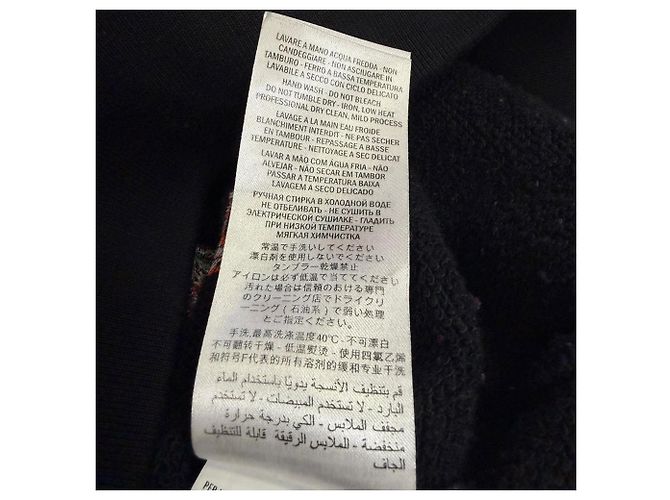 LAVARE A MANO ACQUA FREDDA - NON
CANDEGGIARE - NON ASCIUGARE IN
TAMBURO - FERRO A BASSA TEMPERATURA
LAVABILE A SECCO CON CICLO DELICATO
HAND WASH - DO NOT BLEACH
DO NOT TUMBLE DRY - IRON, LOW HEAT
PROFESSIONAL DRY CLEAN, MILD PROCESS
LAVAGE A LA MAIN EAU FROIDE
BLANCHIMENT INTERDIT - NE PAS SECHER
EN TAMBOUR - REPASSAGE A BASSE
TEMPERATURE - NETTOYAGE A SEC DELICAT
LAVAR A MÃO COM ÁGUA FRIA - NÃO
ALVEJAR - NÃO SECAR EM TAMBOR
PASSAR A TEMPERATURA BAIXA
LAVAGEM A SECO DELICADO
РУЧНАЯ СТИРКА В ХОЛОДНОЙ ВОДЕ
НЕ ОТБЕЛИВАТЬ - НЕ СУШИТЬ В
ЭЛЕКТРИЧЕСКОЙ СУШИЛКЕ - ГЛАДИТЬ
ПРИ НИЗКОЙ ТЕМПЕРАТУРЕ
МЯГКАЯ ХИМЧИСТКА
常温で手洗いしてください
漂白剤を使用しないでください
タンブラー乾燥禁止
アイロンは必ず低温で当ててください
汚れた場合は信頼のおける専門
のクリーニング店でドライクリ
ーニング(石油系)で弱い処理
とご指定ください。
手洗,最高洗涤温度40℃ - 不可漂白
不可翻转干燥 - 低温熨烫 - 使用四氯乙烯
和符号F代表的所有溶剂的缓和专业干洗
قم بتنظيف الأنسجة يدويًا باستخدام الماء
البارد - لا تستخدم المبيضات - لا تستخدم
مجفف الملابس - الكي بدرجة حرارة
منخفضة - الملابس الرقيقة قابلة للتنظيف
الجاف